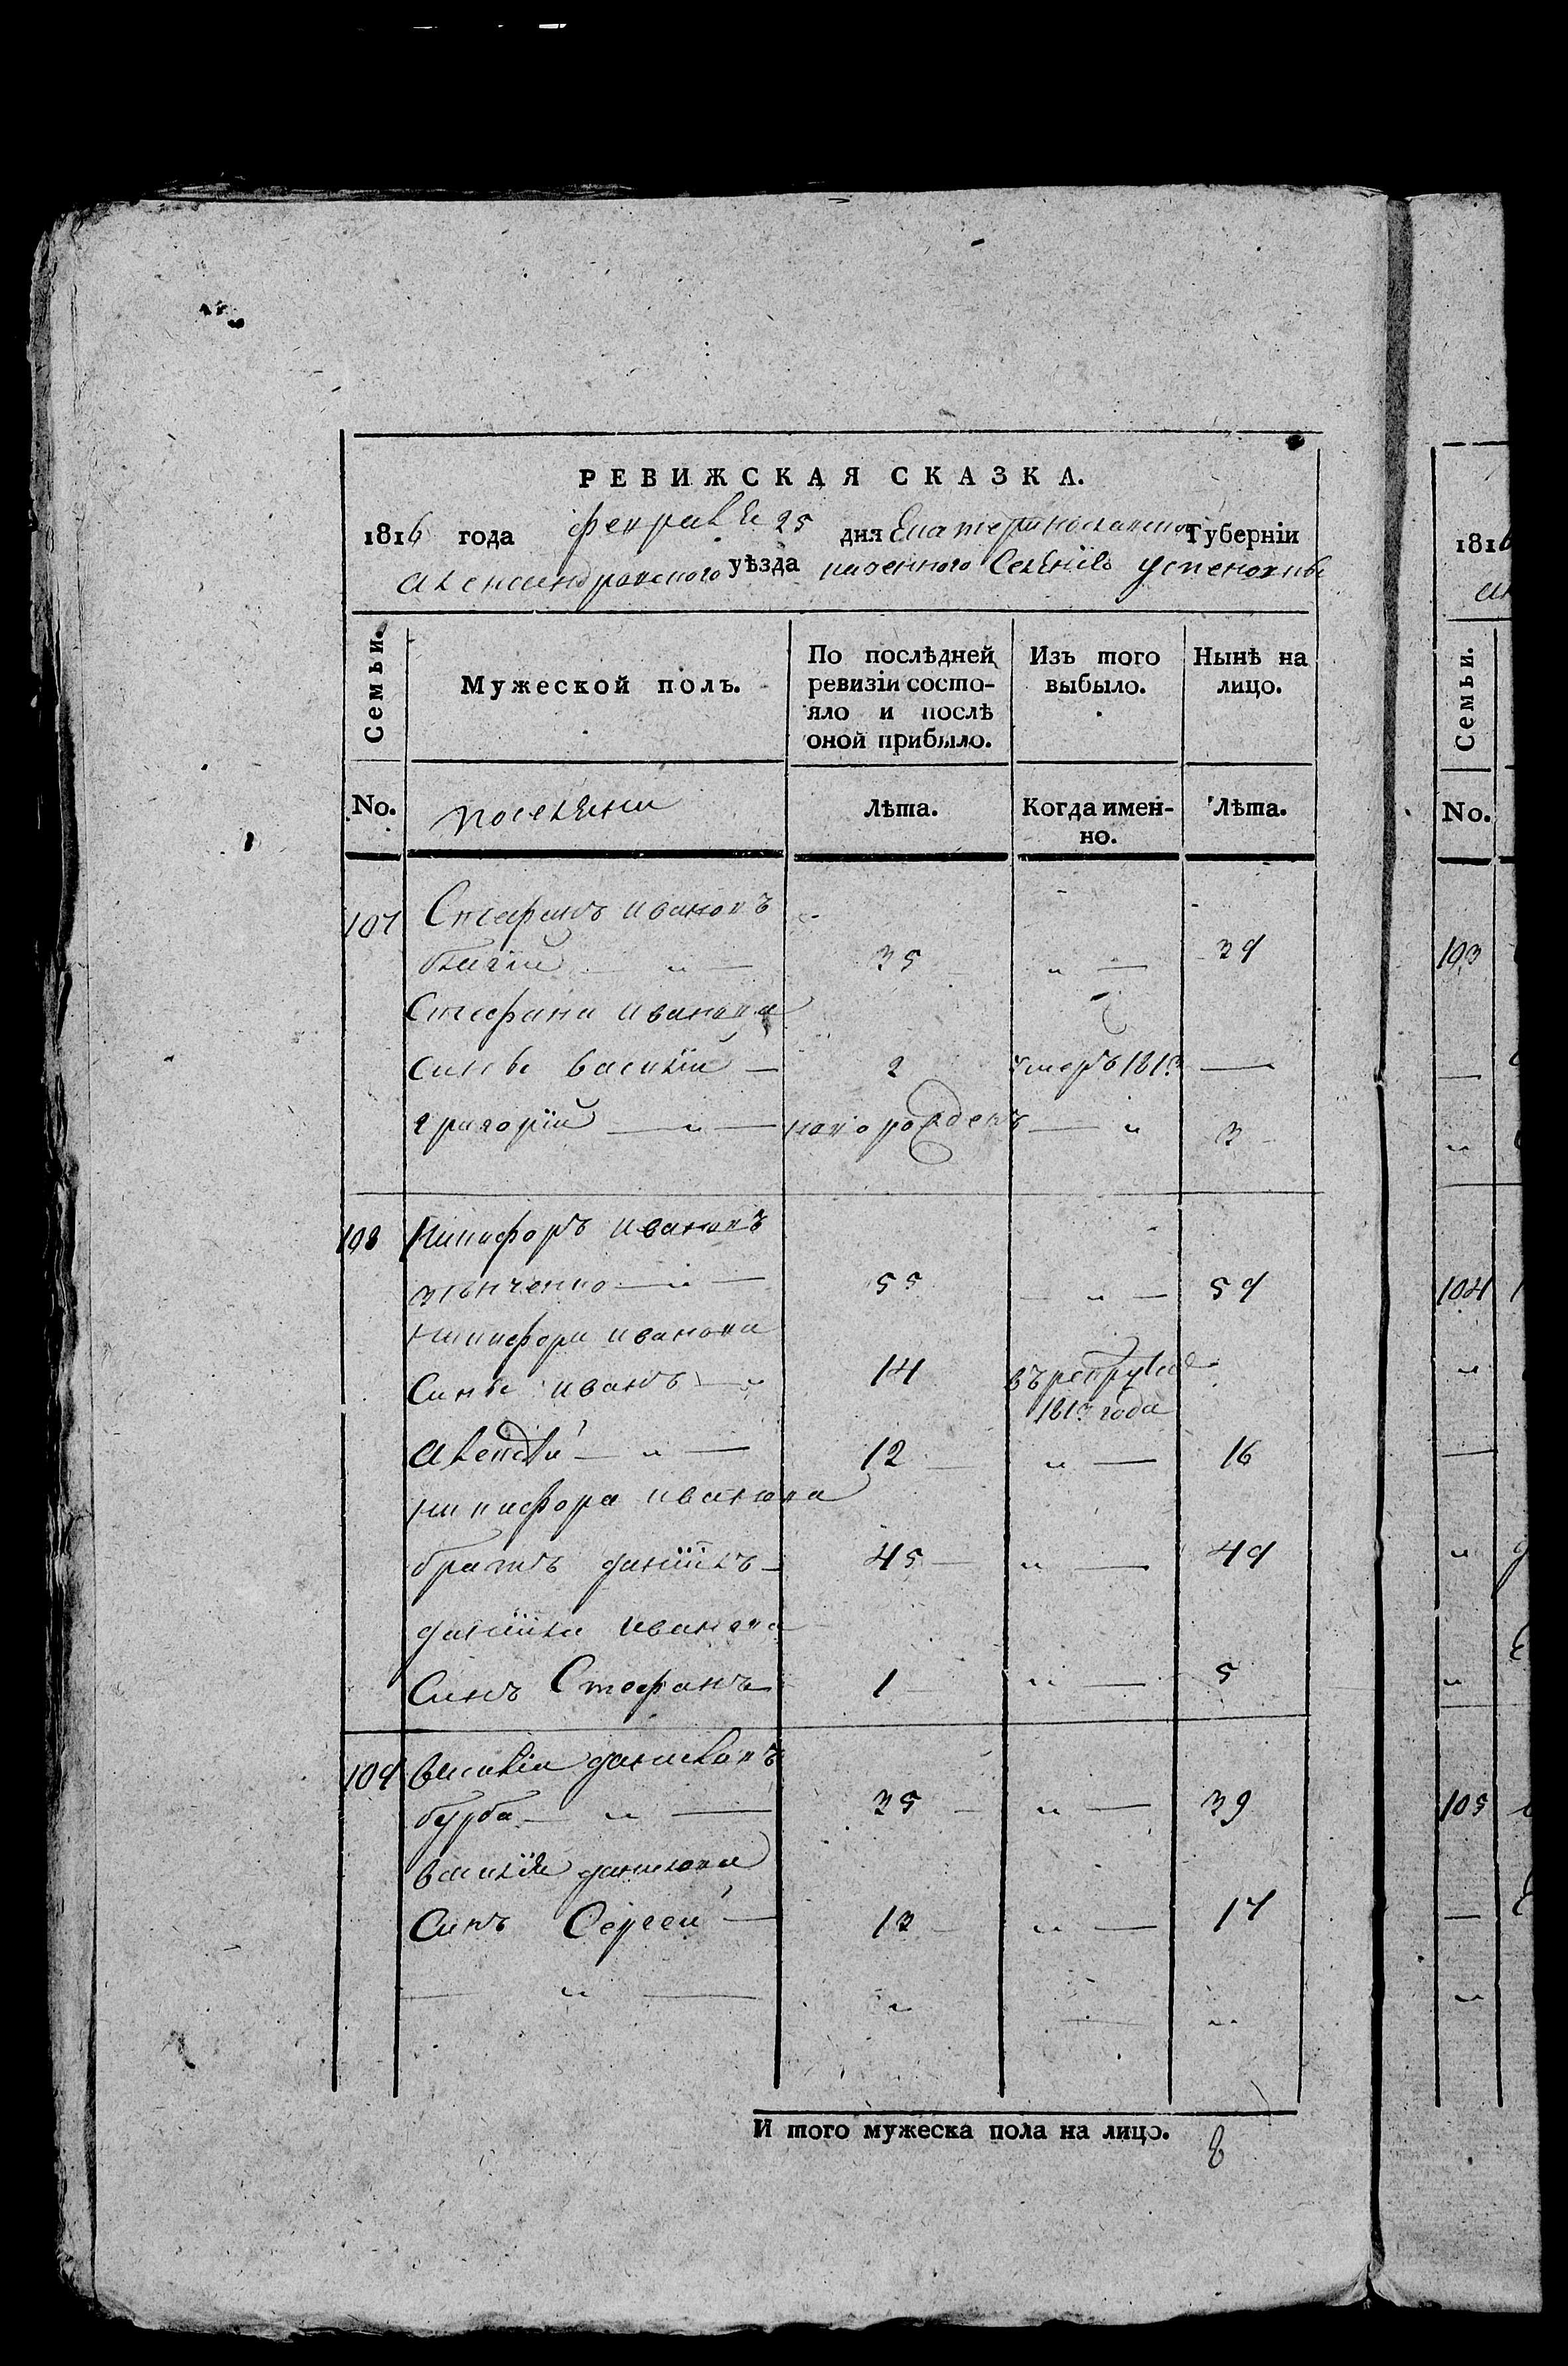 РЕВИЖСКАЯ СКАЗКА.
1816 года февраля 25 дня Екатеринославской Губерніи
Александровского уѣзда казенного Селенія Успеновки
Семьи.
Мужеской полъ.
По послѣдней ревизіи состо-
яло и послѣ
оной прибыло.
Изъ того
выбыло.
Нынѣ на
лицо.
No.
поселяни
Лѣта.
Когда имен-
но.
Лѣта.
107 Стефанъ ивановъ
35 " 39
Стефана иванова
синъ василій 2 умеръ 1813
григорій " новорожденъ " 3
108 Никифоръ ивановъ
" 55 " 59
никифора иванова
Синъ иванъ " 14 въ рекруты
1813 года
Алексѣй " 12 " 16
никифора иванова
братъ даніилъ 45 " 49
даніила иванова
Синъ Стефанъ 1 " 5
109 василій даниловъ
бурба " 35 " 39
василія данилова
Синъ Сергей 13 " 17
" " "
И того мужеска пола на лицо. 8
1816
Семьи.
No.
103
"
104
"
"
"
105
"